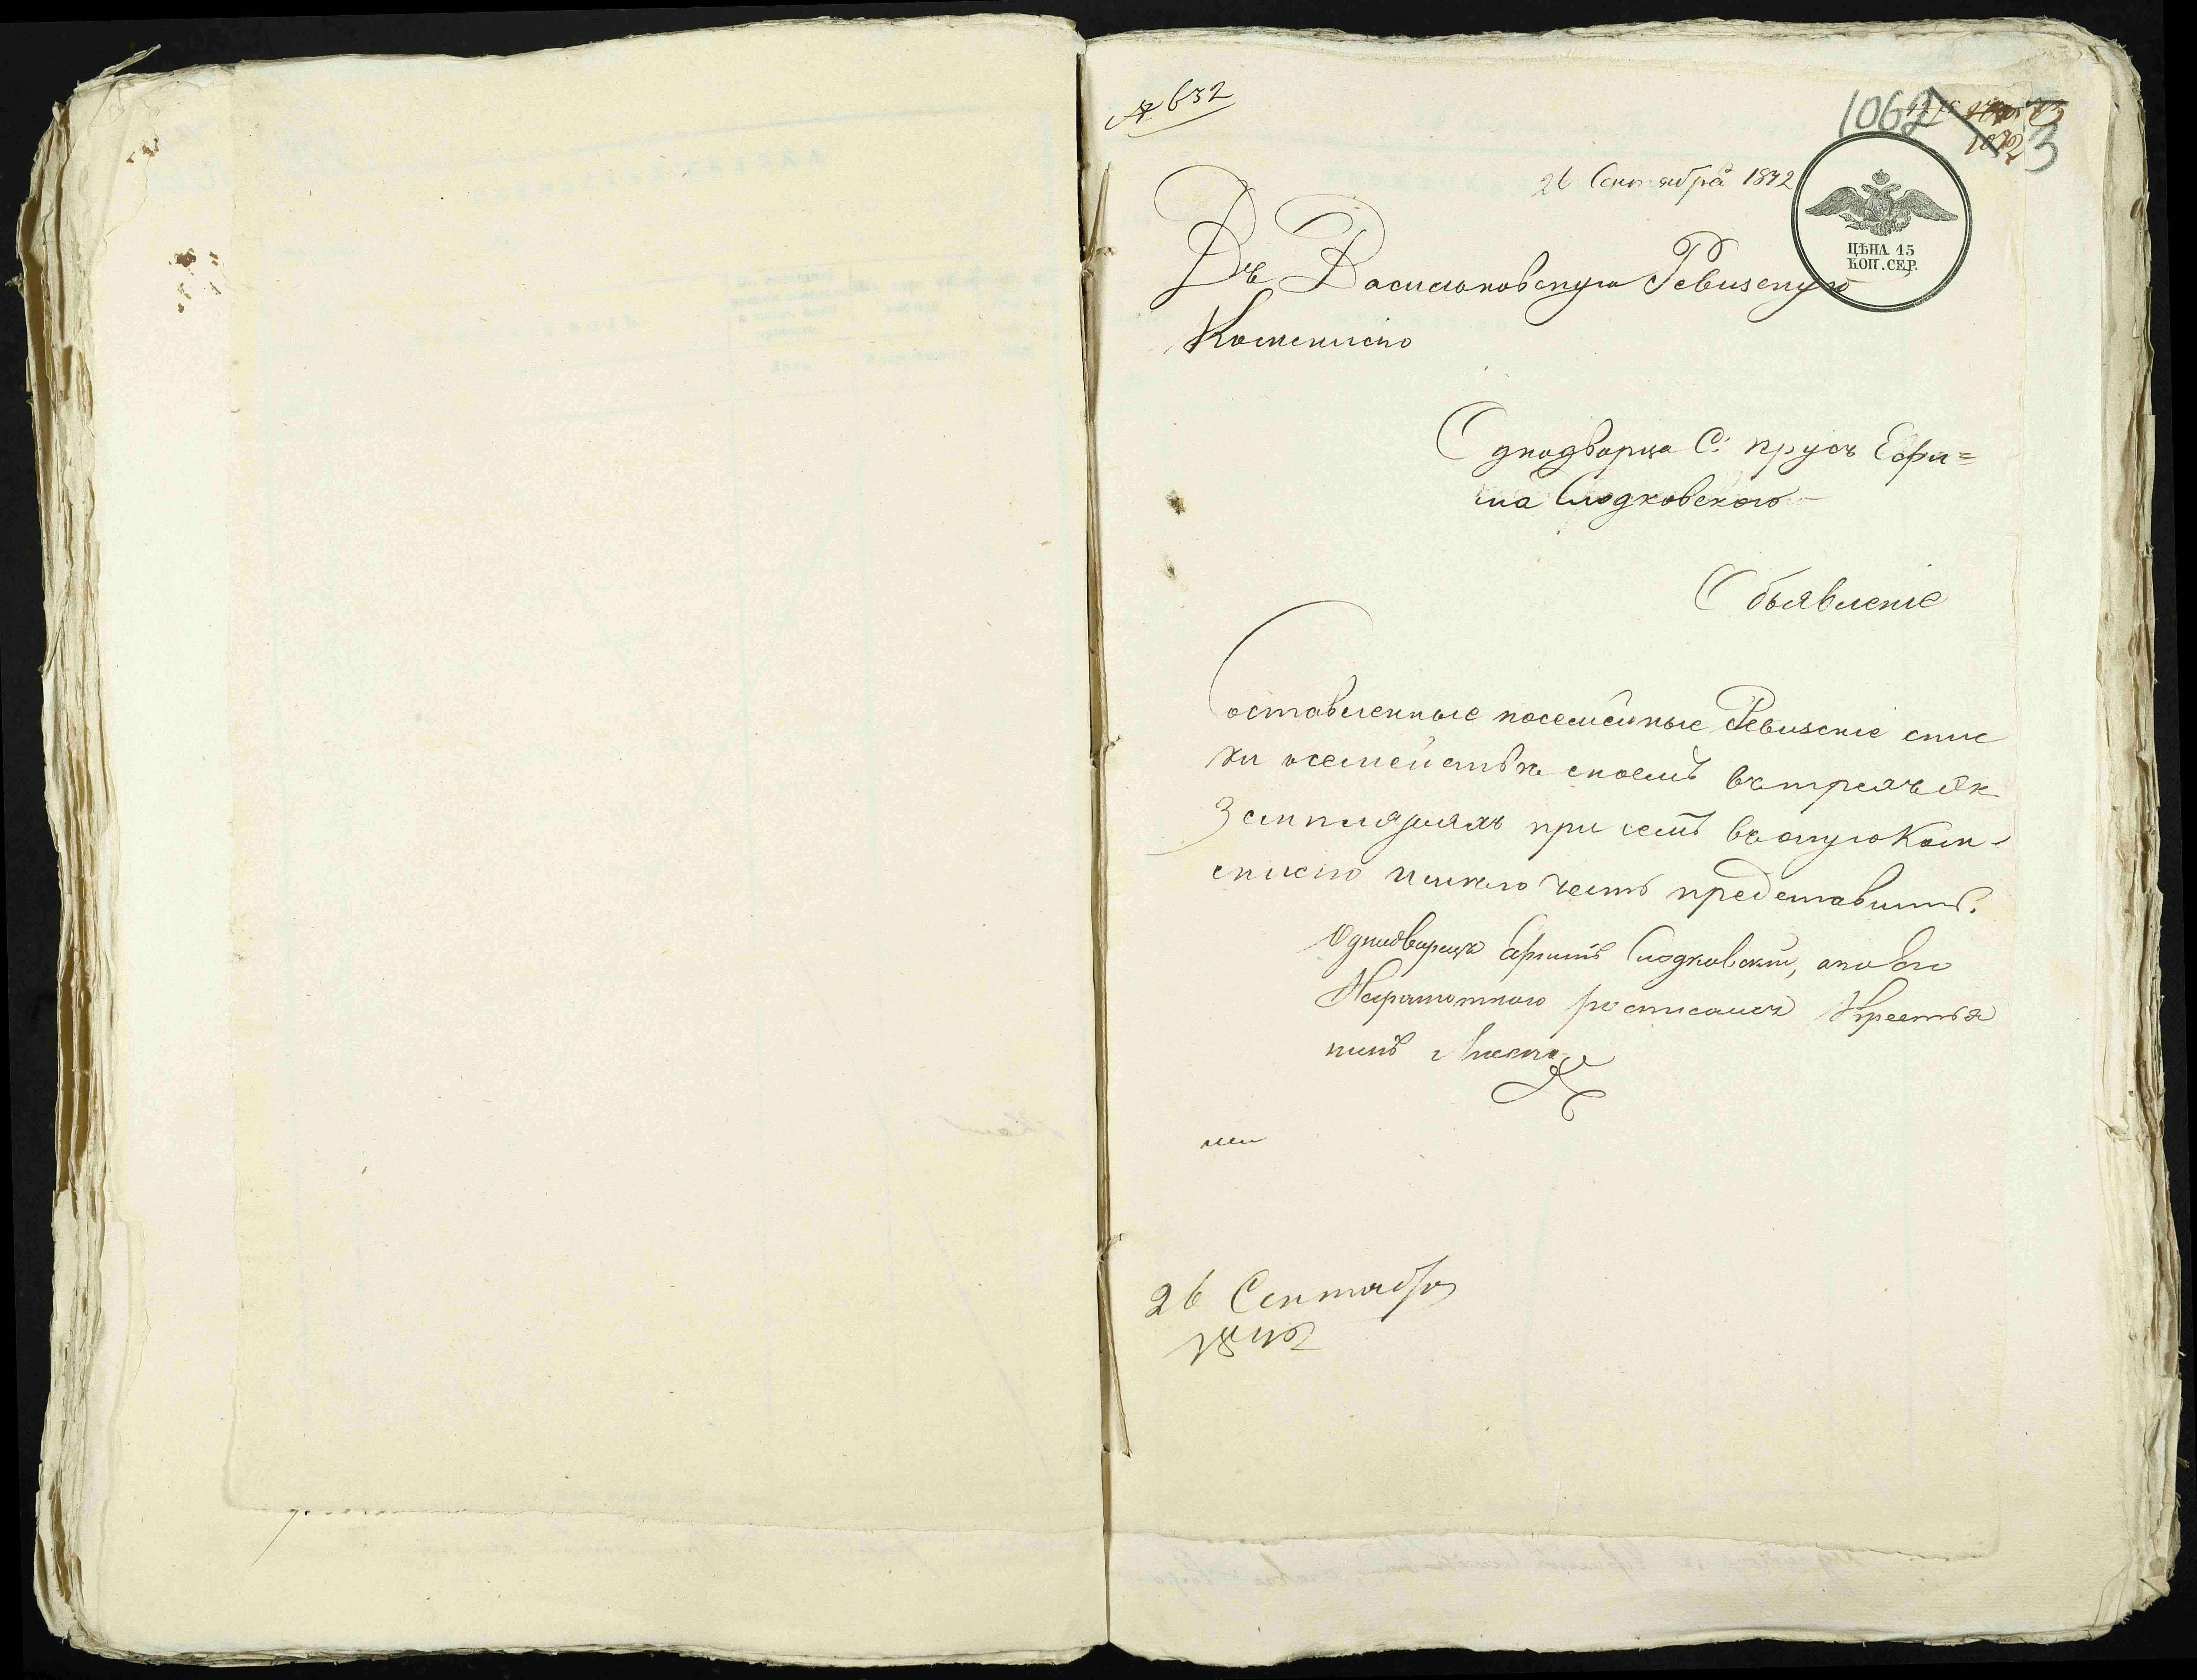 № 632
1062
3
26 Сентября 1842
ЦѢНА 15
КОП. СЕР.
Въ Васильковскую Ревизскую
Коммисію
Однодворца С. Прусъ Ефи=
ма Слодковского
Объявленіе
Составленные посемейные Ревизскіе спис
ки о семействѣ своемъ въ трехъ эк
земплярахъ при семъ въ оную Ком-
мисію имѣю честь представить.
Однодворецъ Ефимъ Слодковский, а по его
Неграмотного росписался Крестья
нинъ
26 Сентября
1842